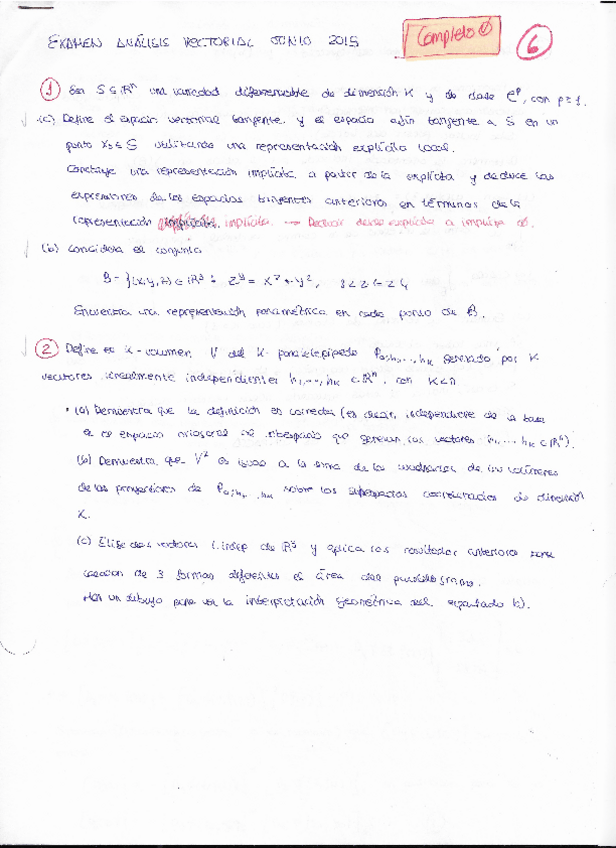 EXAMEN ANÁLISIS VECTORIAL JUNIO 2015
Completo
6
1 Sea S ⊆ ℝⁿ una variedad diferenciable de dimensión K y de clase Cᵖ, con p≥1.
(a) Define el espacio vectorial tangente y el espacio afín tangente a S en un
punto x₀ ∈ S utilizando una representación explícita local.
Construye una representación implícita a partir de la explícita y deduce las
expresiones de los espacios tangentes anteriores en términos de la
representación implícita. → Deducir desde explícita a implícita
(b) Considera el conjunto
B = {(x,y,z) ∈ ℝ³ : = x² + y², }
Encuentra una representación paramétrica en cada punto de B.
2 Define el K-volumen V del K-paralelepípedo P generado por K
vectores linealmente independientes h₁,...,hₖ ⊂ ℝⁿ, con K<n
(a) Demuestra que la definición es correcta (es decir, independiente de la base
que generan los vectores h₁,...,hₖ ⊂
(b) Demuestra que V² es igual a la suma de los cuadrados de los volúmenes
de las proyecciones de P sobre los subespacios coordenados de dimensión
K.
(c) Elige dos vectores l. indep de ℝ³ y aplica los resultados anteriores para
de 3 formas diferentes el área del paralelogramo.
Haz un dibujo para ver la interpretación geométrica del apartado b).